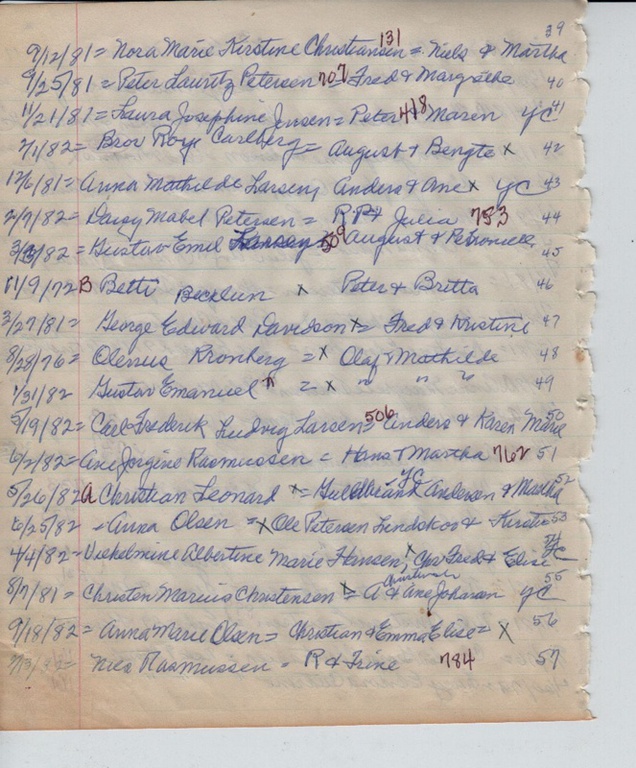 9/12/81 = Nora Marie Kirstine Christiansen 131 = Niels & Martha 39
9/25/81 = Peter Lauritz Petersen 707 = Fred & Margrethe 40
11/21/81 = Laura Josephine Jensen = Peter 418 Maren YC 41
7/1/82 = Bror Roye Carlberg = August & Bengta X 42
12/6/81 = Anna Mathilde Larsen, Anders & Ane X YC 43
2/7/82 = Daisy Mabel Petersen = R.P. & Julia 753 44
/82 = Gustav Emil Larsen 509 August & Petronelle 45
11/9/72 B Betti Becklun X Peter & Britta 46
2/27/81 = George Edward Davidson X = Fred & Kristine 47
8/28/76 = Olenus Kronberg = X Olaf & Mathilde 48
1/31/82 Gustav Emanuel " = X " " " 49
/19/82 = Carl Frederik Ludvig Larsen 506 = Anders & Karen Marie 50
6/2/82 = Ane Jorgine Rasmussen = Hans & Martha 762 51
5/26/82 A Christian Leonard X = YC Andersen & Martha 52
6/25/82 = Anna Olsen = X Ole Petersen Lindskov & Kirstine 53
4/4/82 = Vilhelmine Albertine Marie Hansen, X Chr Fred & Elise YC 54
8/7/81 = Christen Marius Christensen X = A Christensen & Ane Johanan YC 55
9/18/82 = Anna Marie Olsen = Christian & Emma Elise = X 56
/82 = Niels Rasmussen = R & Trine 784 57